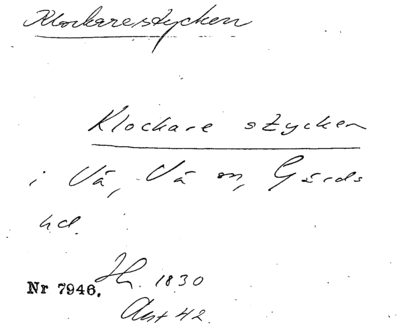 Klockarestycken
Klockare stycken
i Vä, Vä sn, Gärds
hd.
Nr 7946. 1830
42